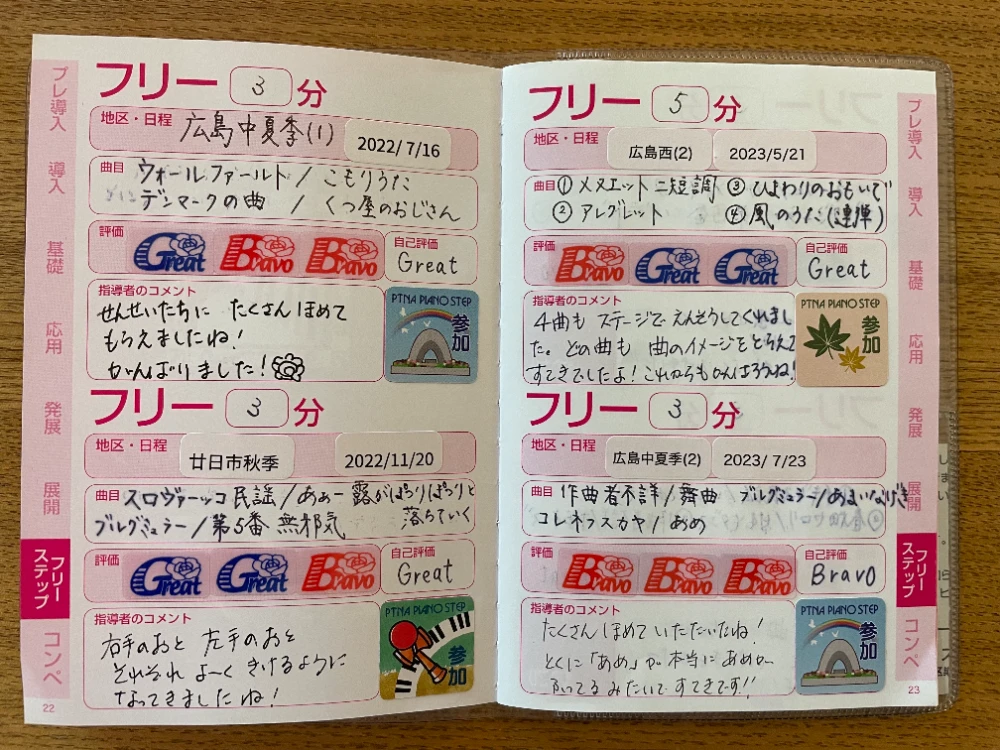 プレ導入
導入
基礎
応用
発展
展開
フリーステップ
コンペ
22
フリー 3 分
地区・日程 広島中夏季(1) 2022/7/16
曲目 ウォールファールト/こもりうた
デンマークの曲 / くつ屋のおじさん
評価 Great Bravo Bravo
自己評価 Great
指導者のコメント
せんせいたちに たくさん ほめて
もらえましたね!
がんばりました!
PTNA PIANO STEP
参加
フリー 3 分
地区・日程 廿日市秋季 2022/11/20
曲目 スロヴァーッコ民謡/あぁー露がぽろりぽろりと
落ちていく
ブルグミュラー/第5番 無邪気
評価 Great Great Bravo
自己評価 Great
指導者のコメント
右手のおと 左手のおと
それぞれ よーく きけるように
なってきましたね!
PTNA PIANO STEP
参加
フリー 5 分
地区・日程 広島西(2) 2023/5/21
曲目 ①メヌエット ニ短調 ③ひまわりのおもいで
②アレグレット ④風のうた(連弾)
評価 Bravo Great Great
自己評価 Great
指導者のコメント
4曲も ステージで えんそうしてくれまし
た。どの曲も 曲のイメージをとらえて
すてきでしたよ!これからもがんばろうね!
PTNA PIANO STEP
参加
フリー 3 分
地区・日程 広島中夏季(2) 2023/7/23
曲目 作曲者不詳/舞曲 ブルグミュラー/あまいなげき
コレネフスカヤ/あめ
評価 Bravo Bravo Bravo
自己評価 Bravo
指導者のコメント
たくさん ほめて いただいたね!
とくに「あめ」が 本当に あめが
ふってる みたいで すてきです!!
PTNA PIANO STEP
参加
プレ導入
導入
基礎
応用
発展
展開
フリーステップ
コンペ
23